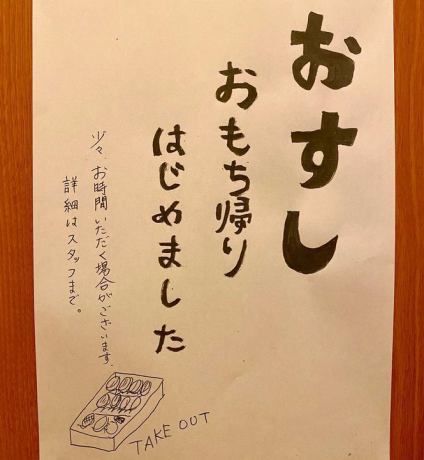 おすし
おもち帰り
はじめました
少々、お時間いただく場合がございます。
詳細はスタッフまで。
TAKE OUT